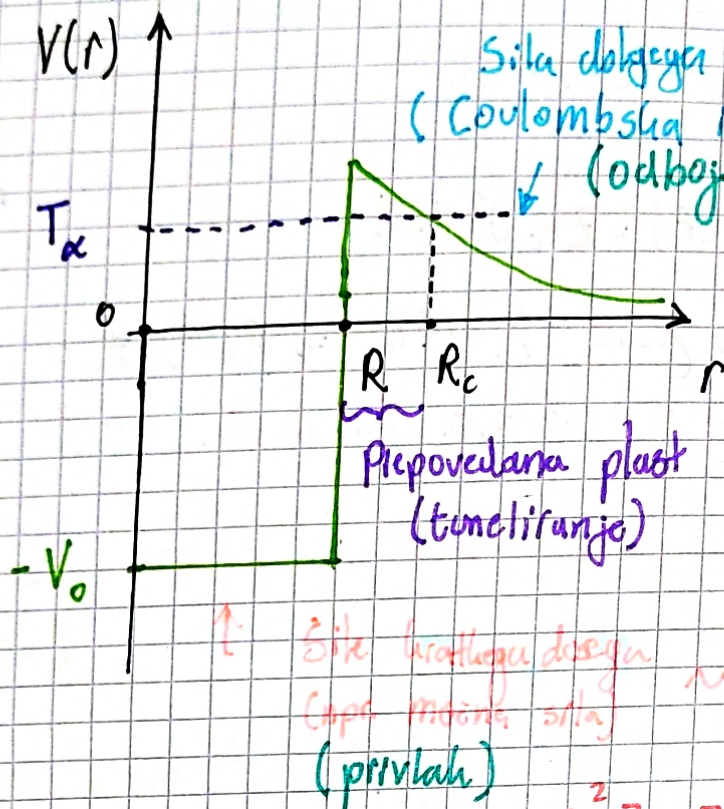 V(r)
Sila dolgega
(Coulombska
(odboj
T_α
0
R
R_c
r
Prepovedana plast
(tuneliranje)
- V_0
↑ Sile kratkega dosega
(npr. močna sila)
(privlak)
2